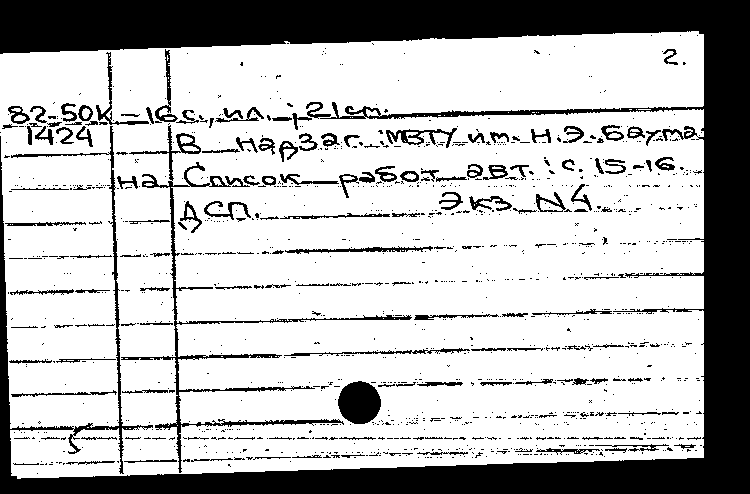 2.
82-50К – 16 с., ил. ; 21 ст.
1424 В надзаг. : МВТУ им. Н.Э. Баума-
на Список работ авт. : с. 15-16.
ДСП. Экз. N4.